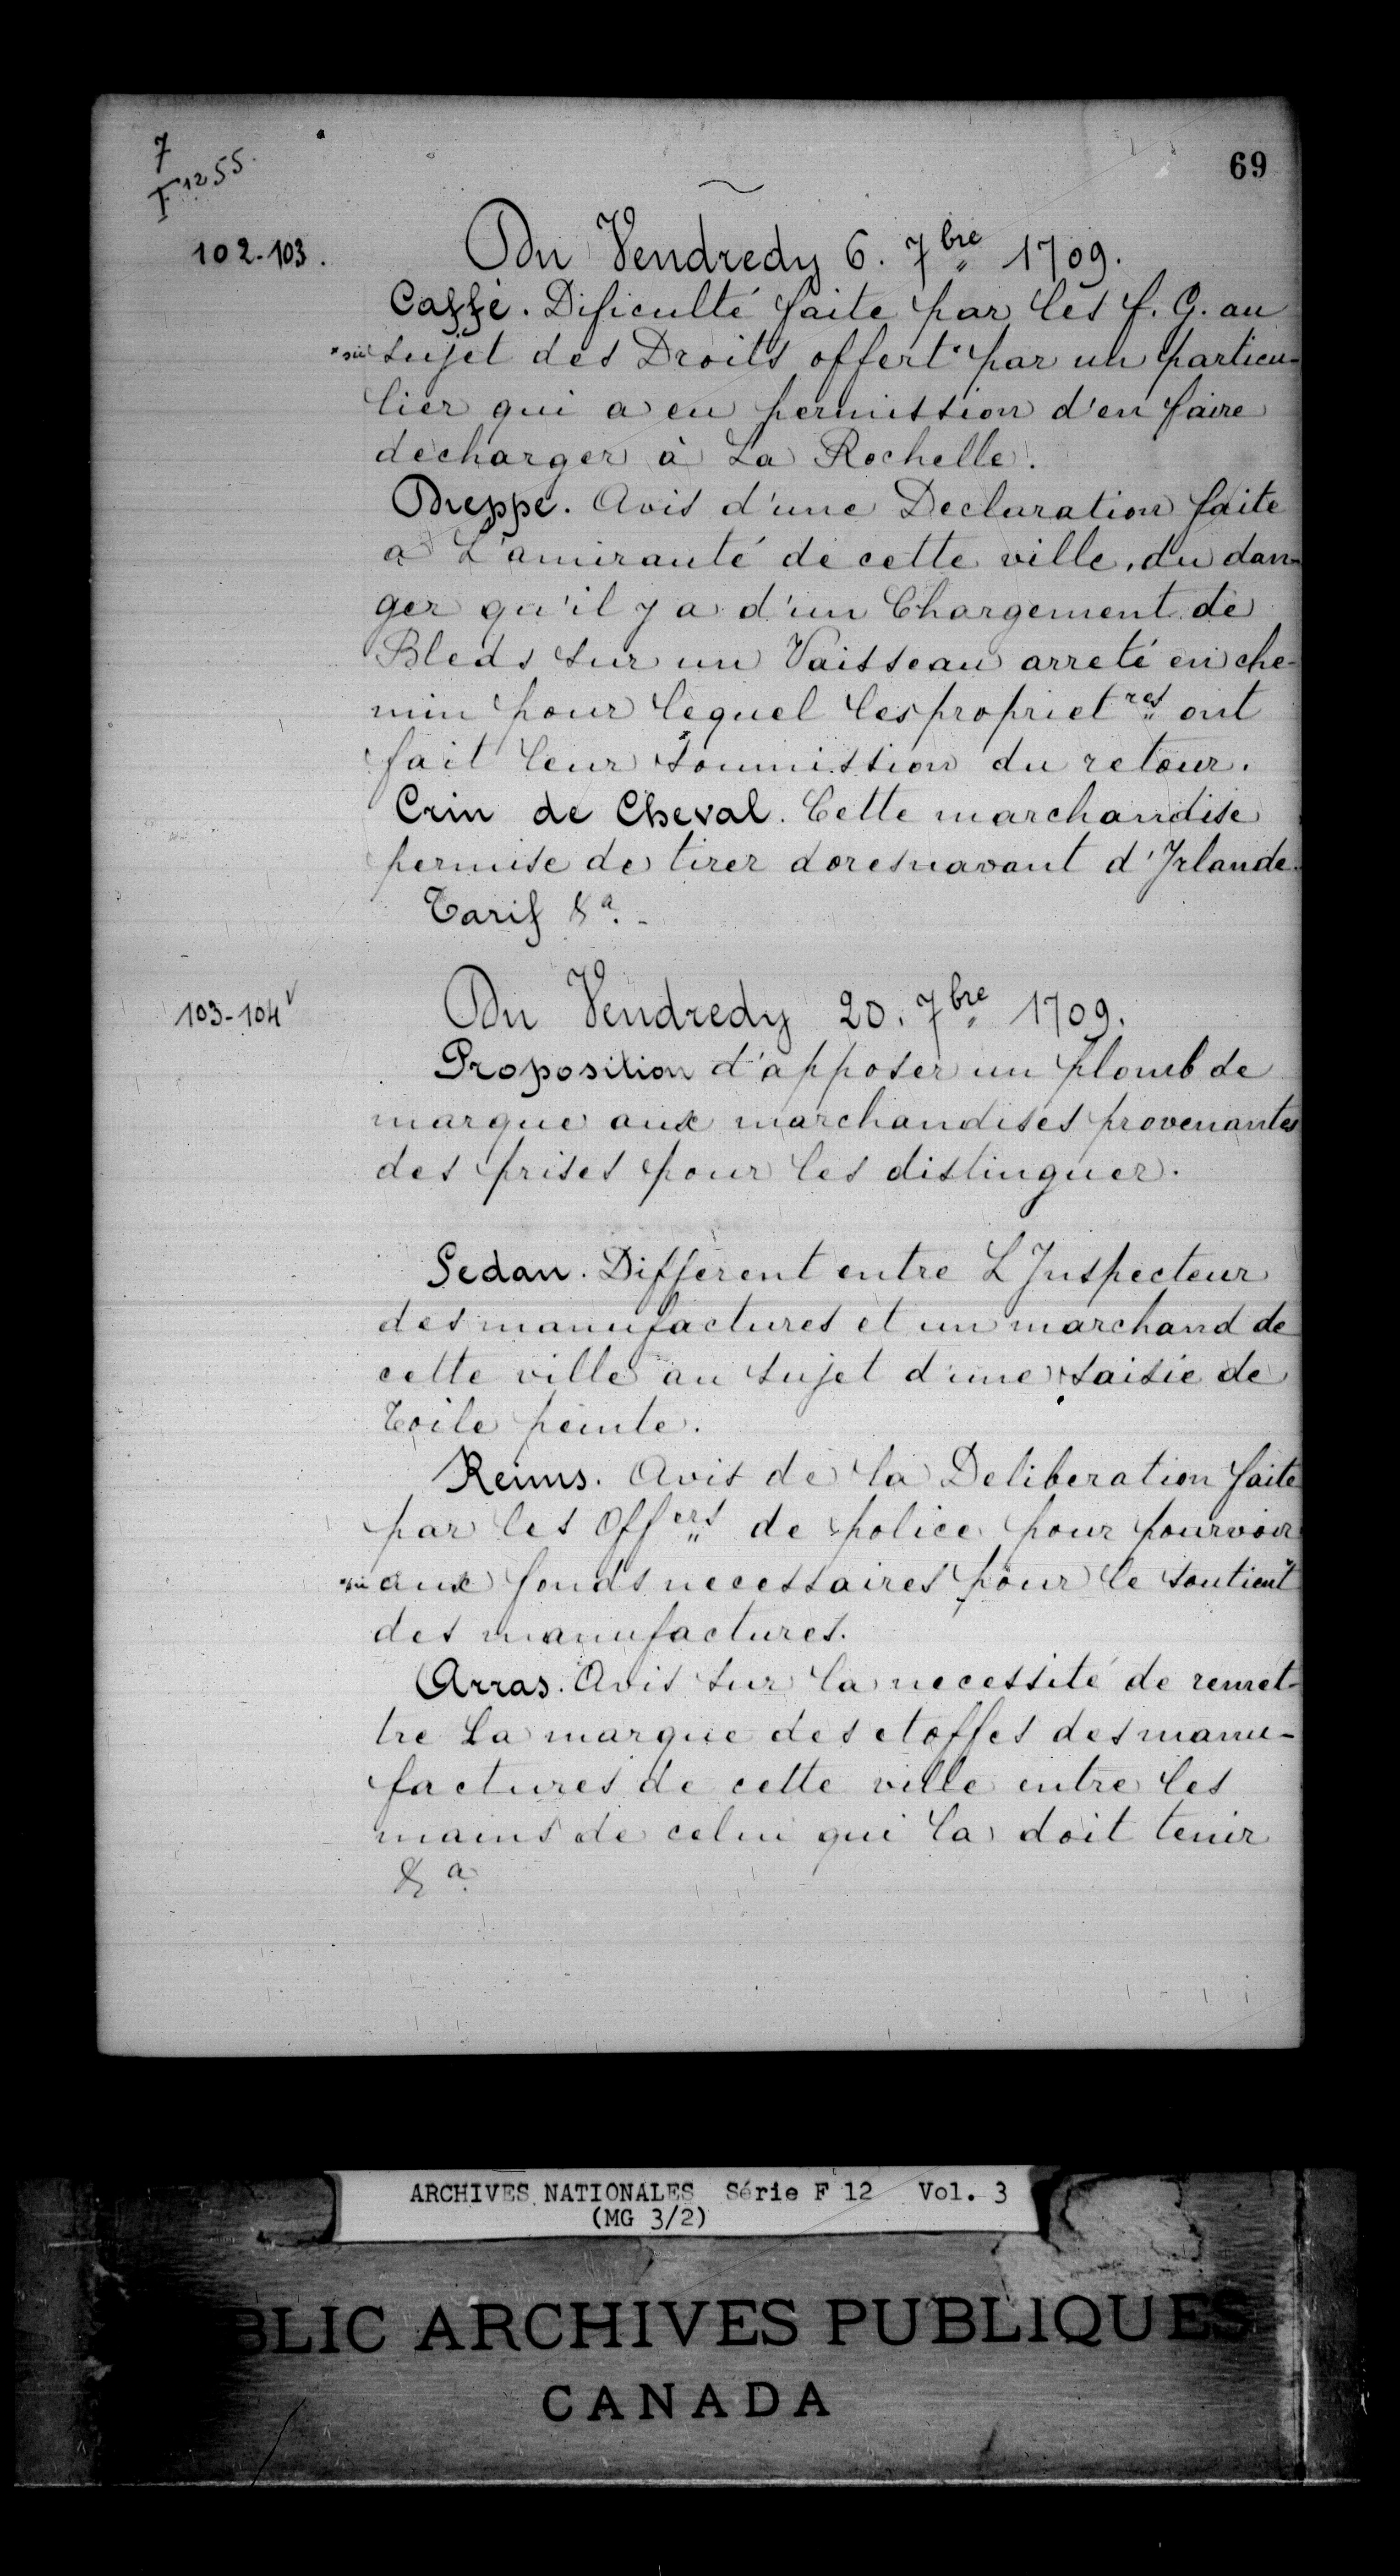 7
F 12 55.
69
102-103.
Du Vendredy 6. 7bre 1709.
Caffé. Dificulté faite par les f. G. au
*sic sujet des Droits offert* par un particu-
lier qui a eu permission d'en faire
decharger à La Rochelle.
Dieppe. Avis d'une Declaration faite
a L'amirauté de cette ville, du dan-
ger qu'il y a d'un Chargement de
Bleds sur un Vaisseau arreté en che-
min pour lequel les propriet.res ont
fait leur soumission du retour.
Crin de Cheval. Cette marchandise
permise de tirer doresnavant d'Irlande.
Tarif &a. -
103-104v
Du Vendredy 20. 7bre 1709.
Proposition d'apposer un plomb de
marque aux marchandises provenantes
des prises pour les distinguer.
Sedan. Different entre L'Inspecteur
des manufactures et un marchand de
cette ville au sujet d'une saisie de
Toile peinte.
Reims. Avis de la Deliberation faite
par les Offers de police pour pourvoir
*sic aux fonds necessaires pour le soutient*
des manufactures.
Arras. Avis sur la necessité de remet-
tre La marque des etoffes des manu-
factures de cette ville entre les
mains de celui qui la doit tenir
&a.
ARCHIVES NATIONALES Série F 12 Vol. 3
(MG 3/2)
BLIC ARCHIVES PUBLIQUES
CANADA